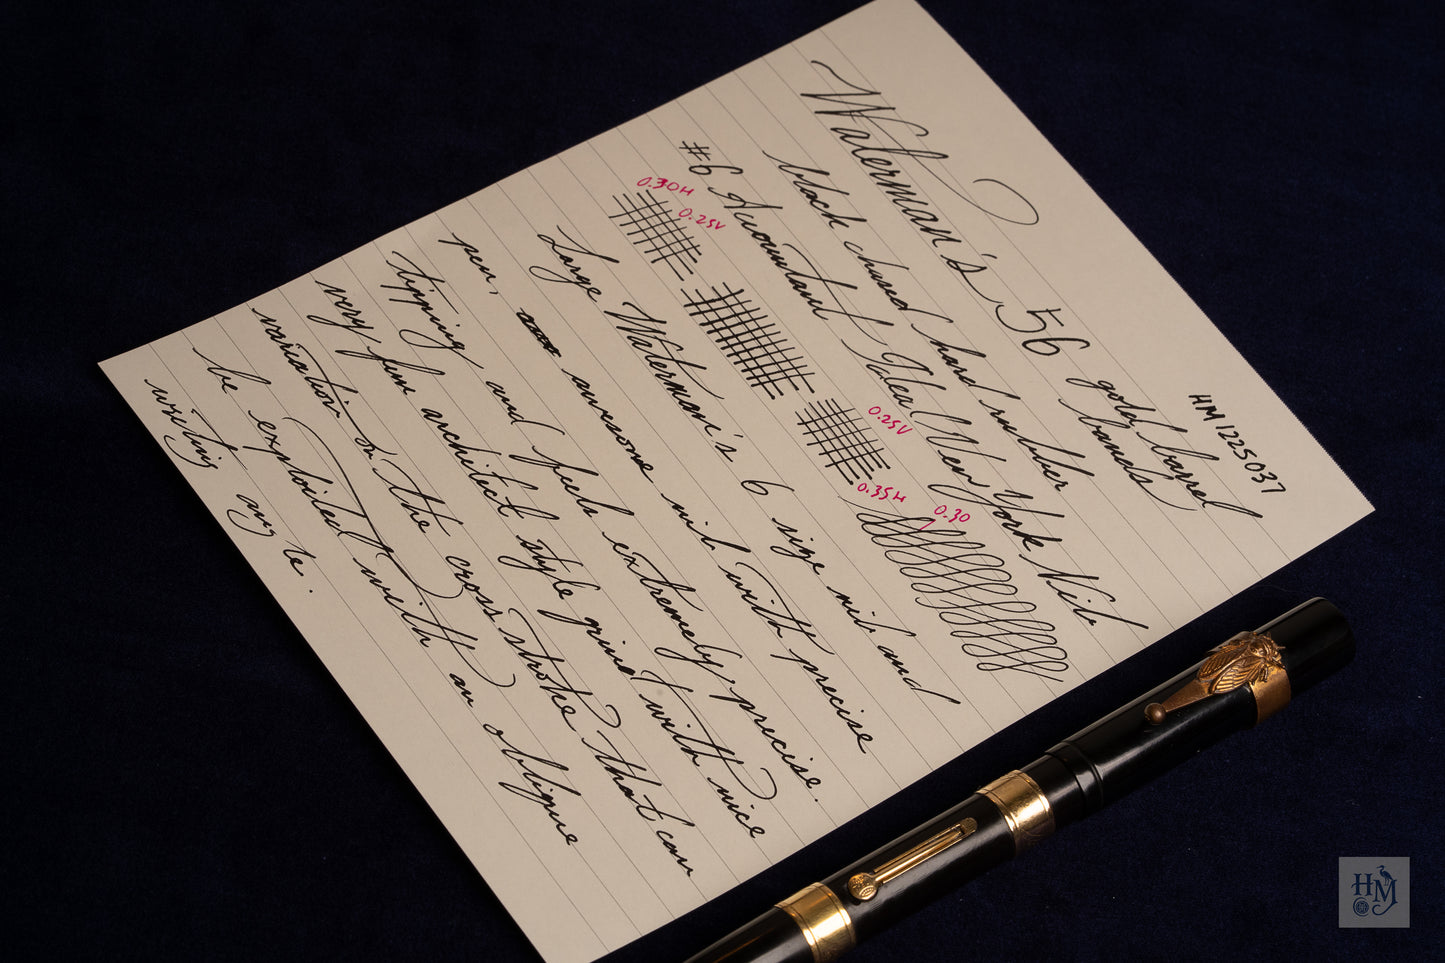 HM1225037
Waterman's 56 gold barrel
bands
black chased hard rubber
#6 Accountant Ideal New York Nib
0.30H
0.25V
0.25V
0.35H
0.30
Large Waterman's 6 size nib and
pen, awesome nib with precise
tipping and feels extremely precise.
very fun architect style grind with nice
variation in the cross stroke that can
be exploited with an oblique
writing angle.
HM